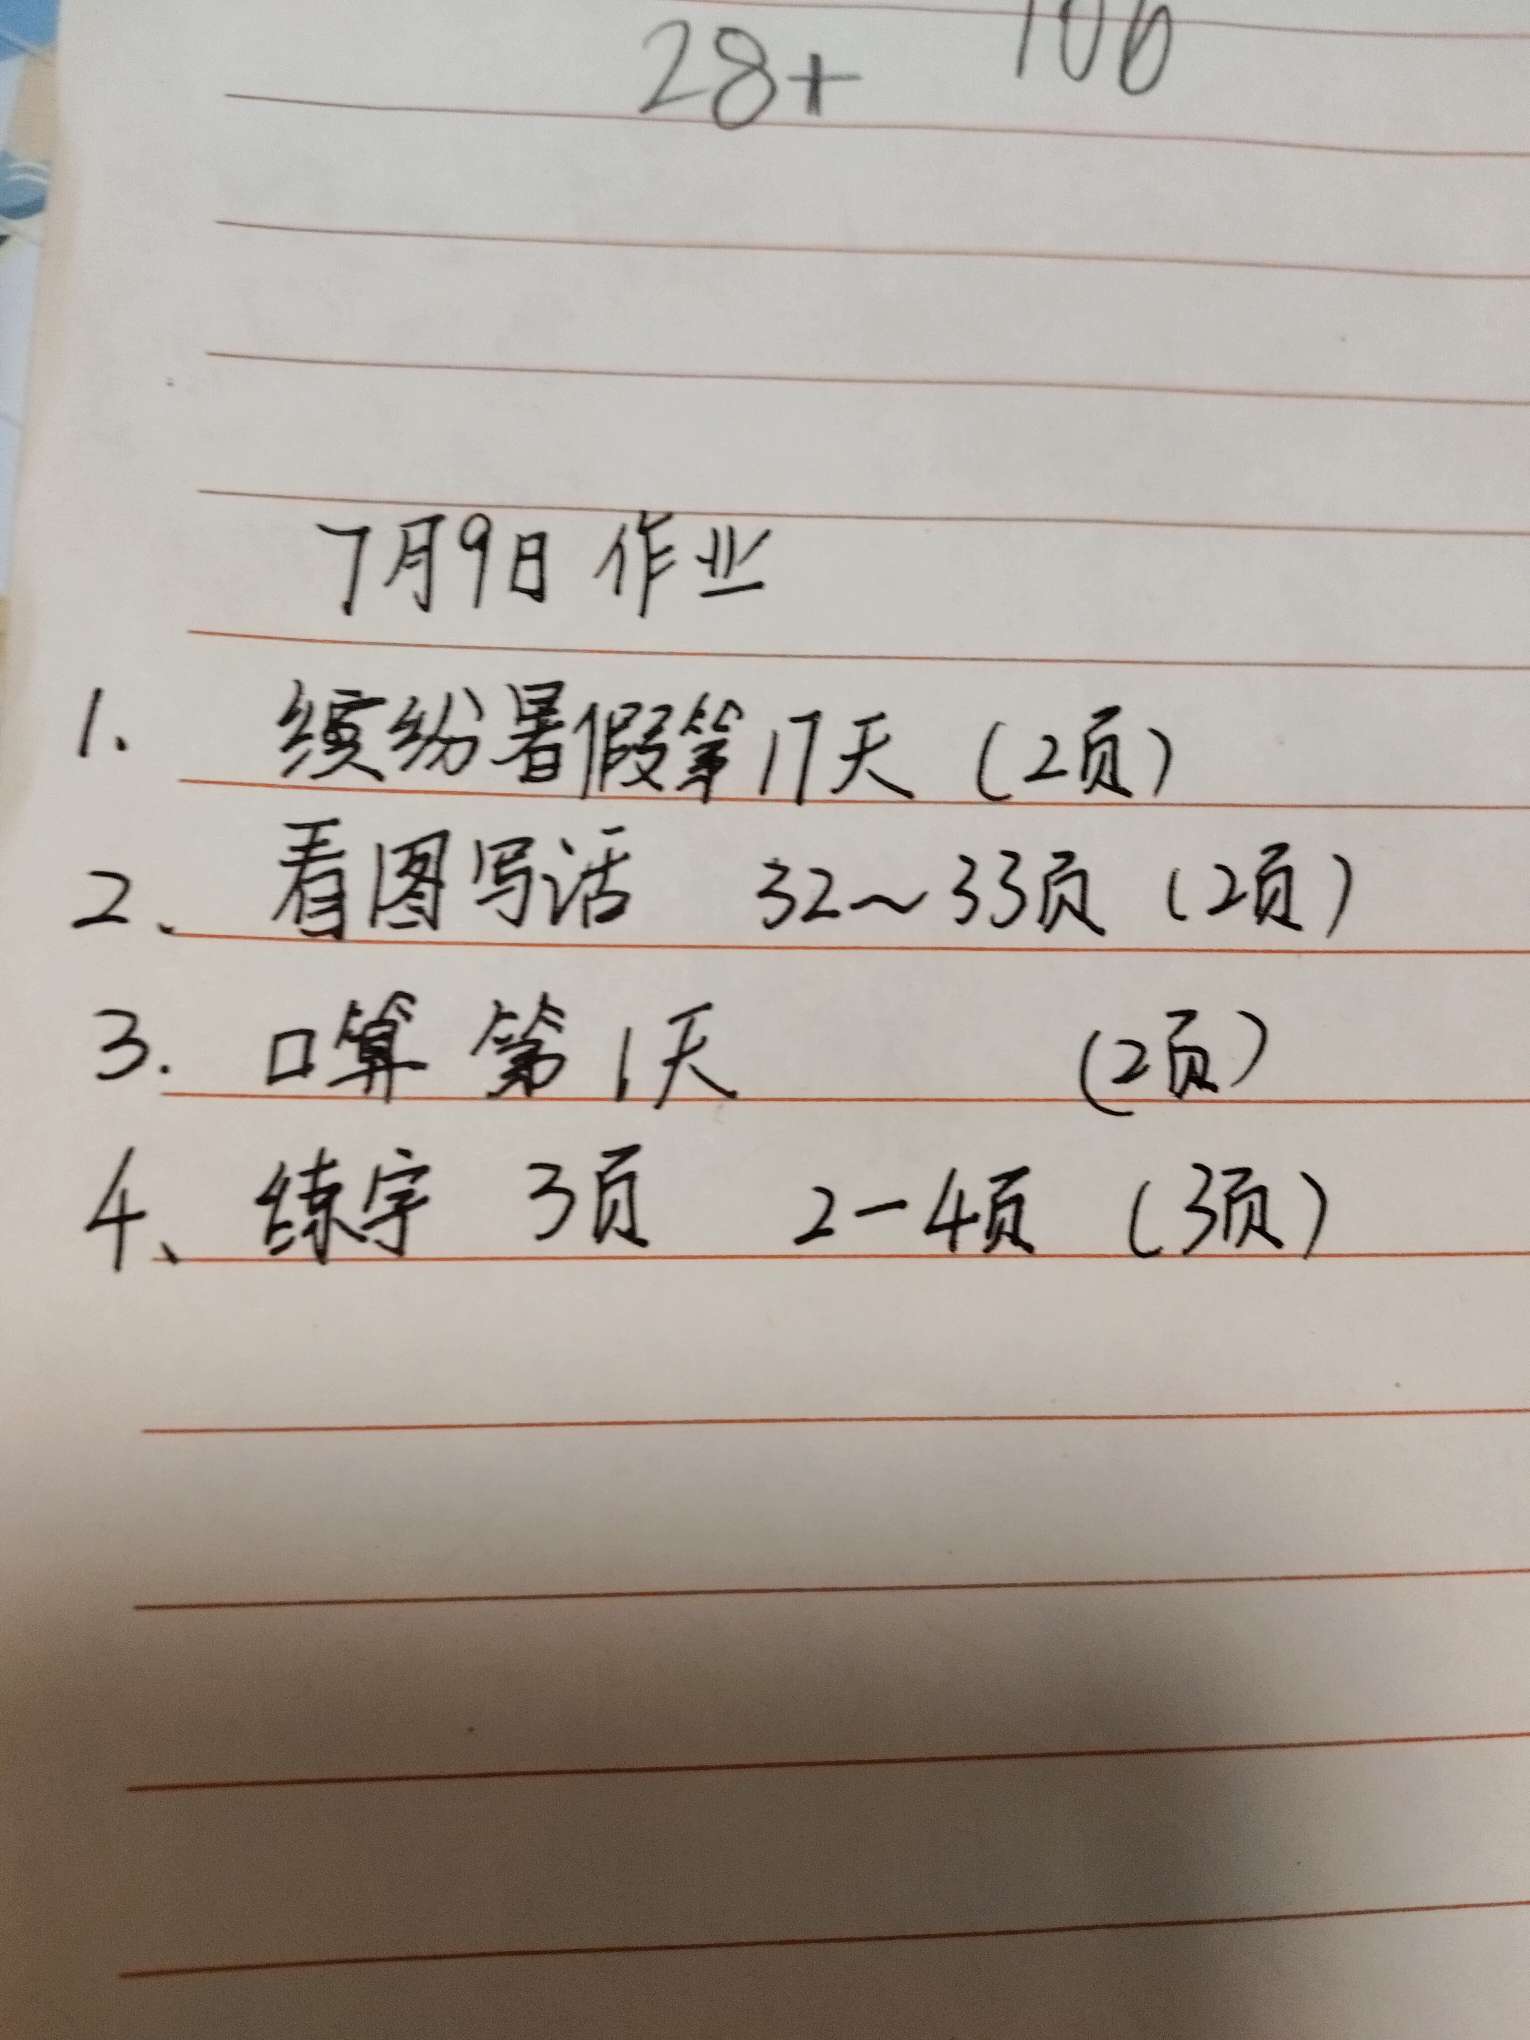 28+ 106
7月9日 作业
1. 缤纷暑假第17天 (2页)
2、看图写话 32~33页 (2页)
3. 口算 第1天 (2页)
4、练字 3页 2-4页 (3页)